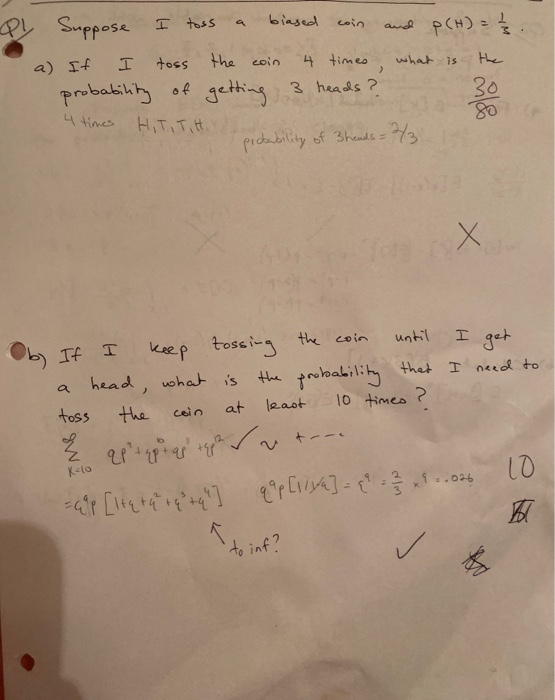 Q1 Suppose I toss a biased coin and p(H) = 1/3.
a) If I toss the coin 4 times, what is the
probability of getting 3 heads?
30/80
4 times H,T,T,H
probability of 3 heads = 2/3
X
b) If I keep tossing the coin until I get
a head, what is the probability that I need to
toss the coin at least 10 times?
∞ Σ K=10 ✓ + ----
= q⁹p [1+q+q²+q³+q⁴] q⁹p[1/1-q] = q⁹ = 2/3 x 9 = .026
10
↑ to inf?
✓